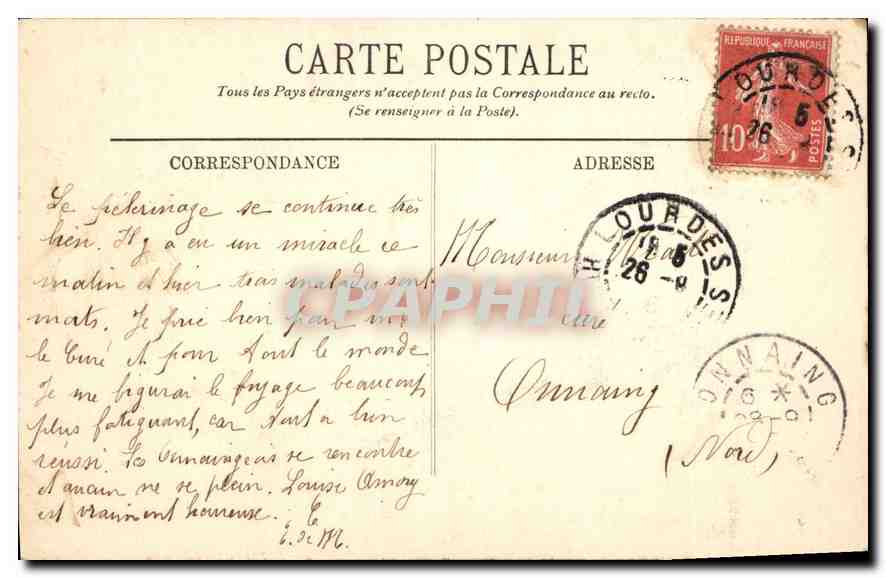 CARTE POSTALE
Tous les Pays étrangers n'acceptent pas la Correspondance au recto.
(Se renseigner à la Poste).
REPUBLIQUE FRANÇAISE
10
POSTES
LOURDES
18 5
26
CORRESPONDANCE
Le pélerinage se continue très
bien. Il y a eu un miracle ce
matin et hier trois malades sont
morts. Je prie bien pour
le Curé et pour tout le monde
Je me figurai le voyage beaucoup
plus fatiguant, car tout a bien
réussi. Les Onnaingeois se rencontre
et aucun ne se plein. Louise Amory
est vraiment heureuse.
E. de M.
ADRESSE
Monsieur
curé
Onnaing
(Nord)
LOURDES
18 5
26
ONNAING
6 *
CPAPHIL